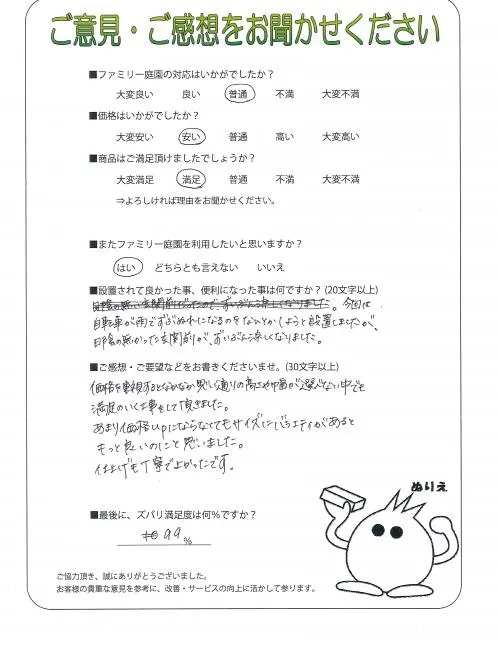 ご意見・ご感想をお聞かせください
■ファミリー庭園の対応はいかがでしたか？
大変良い 良い 普通 不満 大変不満
■価格はいかがでしたか？
大変安い 安い 普通 高い 大変高い
■商品はご満足頂けましたでしょうか？
大変満足 満足 普通 不満 大変不満
⇒よろしければ理由をお聞かせください。
■またファミリー庭園を利用したいと思いますか？
はい どちらとも言えない いいえ
■設置されて良かった事、便利になった事は何ですか？(20文字以上)
日陰の無い玄関前だったので、ずいぶん涼しくなりました。今回は
自転車が雨でずぶぬれになるのをなんとかしようと設置しましたが、
日陰の無かった玄関前が、ずいぶん涼しくなりました。
■ご感想・ご要望などをお書きくださいませ。(30文字以上)
価格を重視するとなかなか思い通りの高さや巾が選べない中でも
満足のいく工事をして頂きました。
あまり価格upにならなくてもサイズにバラエティがあると
もっと良いのにと思いました。
仕上げも丁寧で良かったです。
■最後に、ズバリ満足度は何％ですか？
99％
ぬりえ
ご協力頂き、誠にありがとうございました。
お客様の貴重な意見を参考に、改善・サービスの向上に活かして参ります。